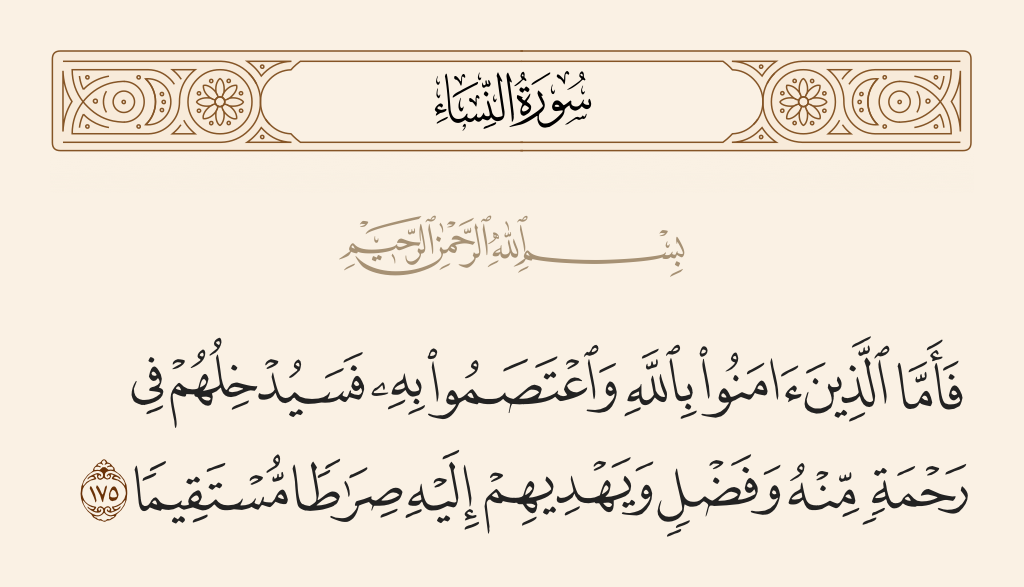 سُورَةُ النِّسَاءِ
بِسْمِ ٱللَّهِ ٱلرَّحْمَٰنِ ٱلرَّحِيمِ
فَأَمَّا ٱلَّذِينَ ءَامَنُوا۟ بِٱللَّهِ وَٱعْتَصَمُوا۟ بِهِۦ فَسَيُدْخِلُهُمْ فِى
رَحْمَةٍ مِّنْهُ وَفَضْلٍ وَيَهْدِيهِمْ إِلَيْهِ صِرَٰطًا مُّسْتَقِيمًا ١٧٥